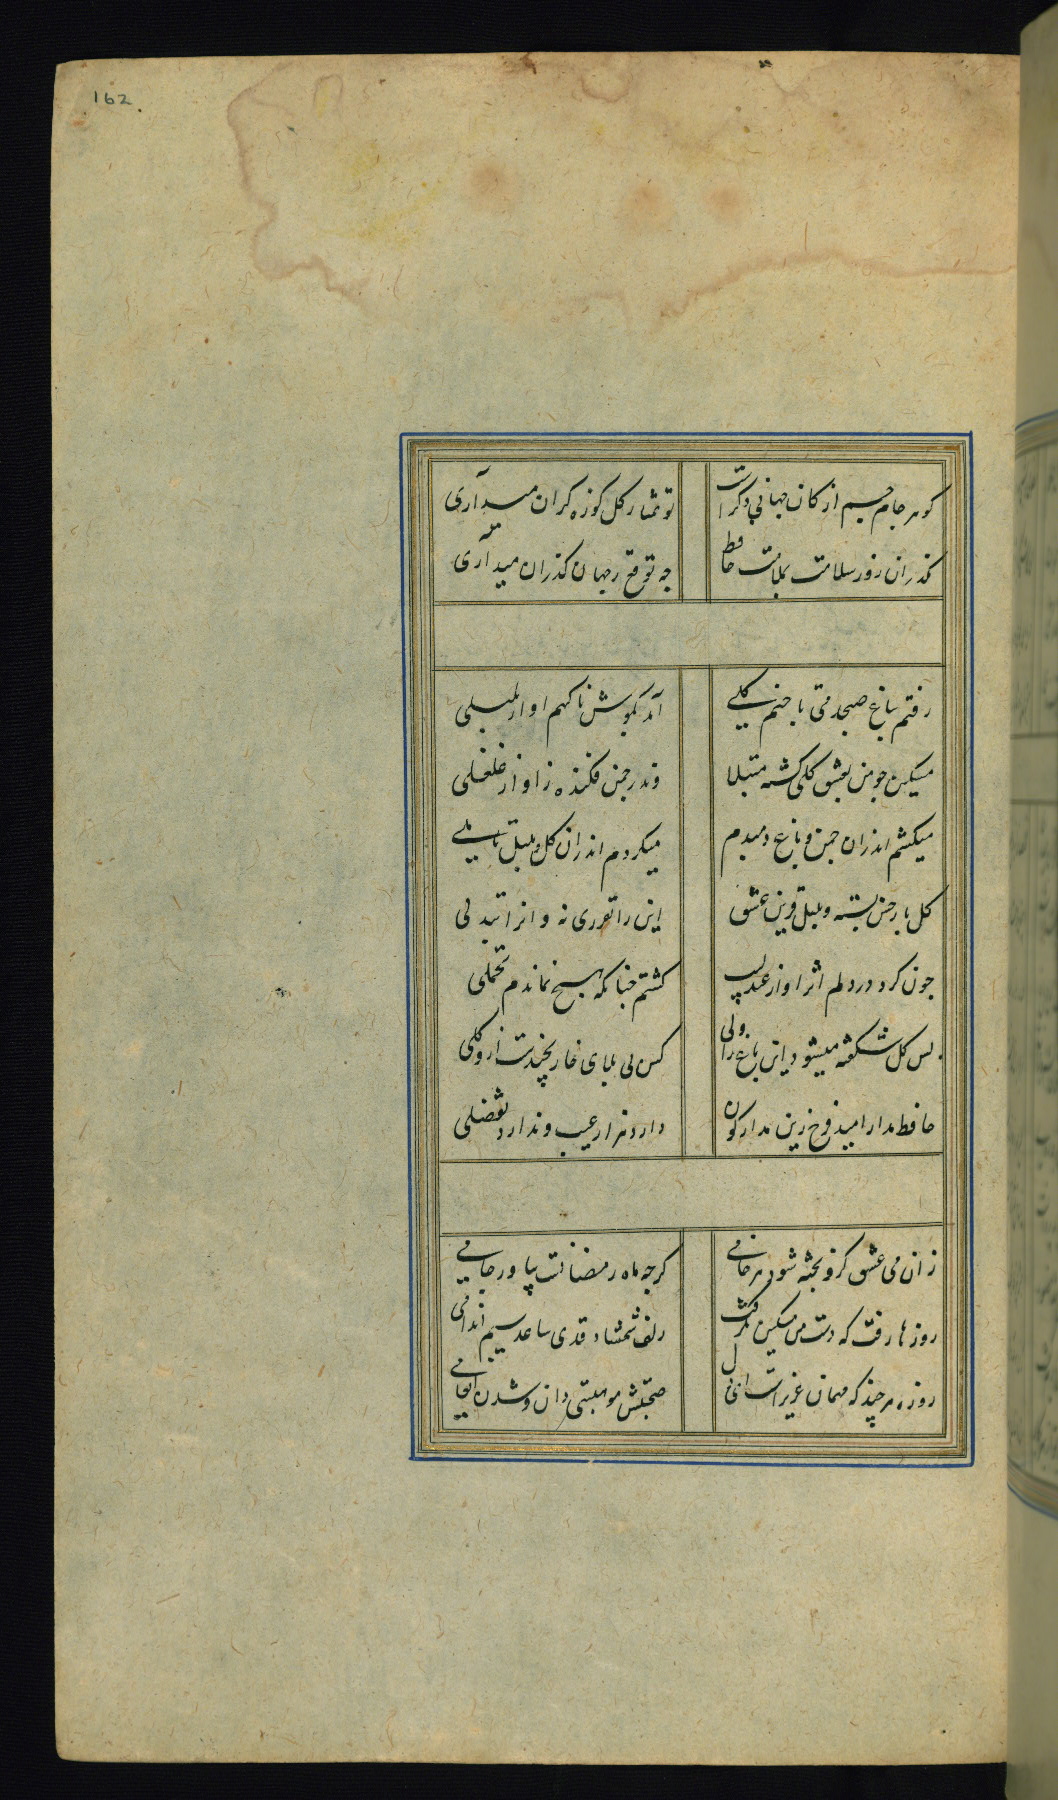 162
کوهر جام جم از کان جهانی دکرست تو تمنا ز کل کوزه کران میداری
مکذران روز سلامت بملامت حافظ چه توقع ز جهان کذران میداری
رفتم بباغ صبحدمی تا چنم کلی آمد بکوش ناکهم اواز بلبلی
مسکین چو من بعشق کلی کشته مبتلا وندر چمن فکنده ز اواز غلغلی
میکشتم اندران چمن و باغ دمبدم میکردم اندران کل و بلبل تاملی
کل یار بستهٔ و بلبل قرین عشق این را تغیری نه و انرا تبدلی
چون کرد در دلم اثر اواز عندلیب کشتم چنانکه هیچ نماندم تحملی
بس کل شکفته میشود این باغ را ولی کس بی بلای خار نچیدست ازو کلی
حافظ مدار امید فرح زین مدار کون دارد هزار عیب و ندارد تفضلی
زان می عشق کزو پخته شود هر خامی کرچه ماه رمضانست بیاور جامی
روزها رفت که دست من مسکین نکرفت زلف شمشاد قدی ساعد سیم اندامی
روزه هر چند که مهمان عزیزست ای دل صحبتش موهبتی دان و شدن انعامی